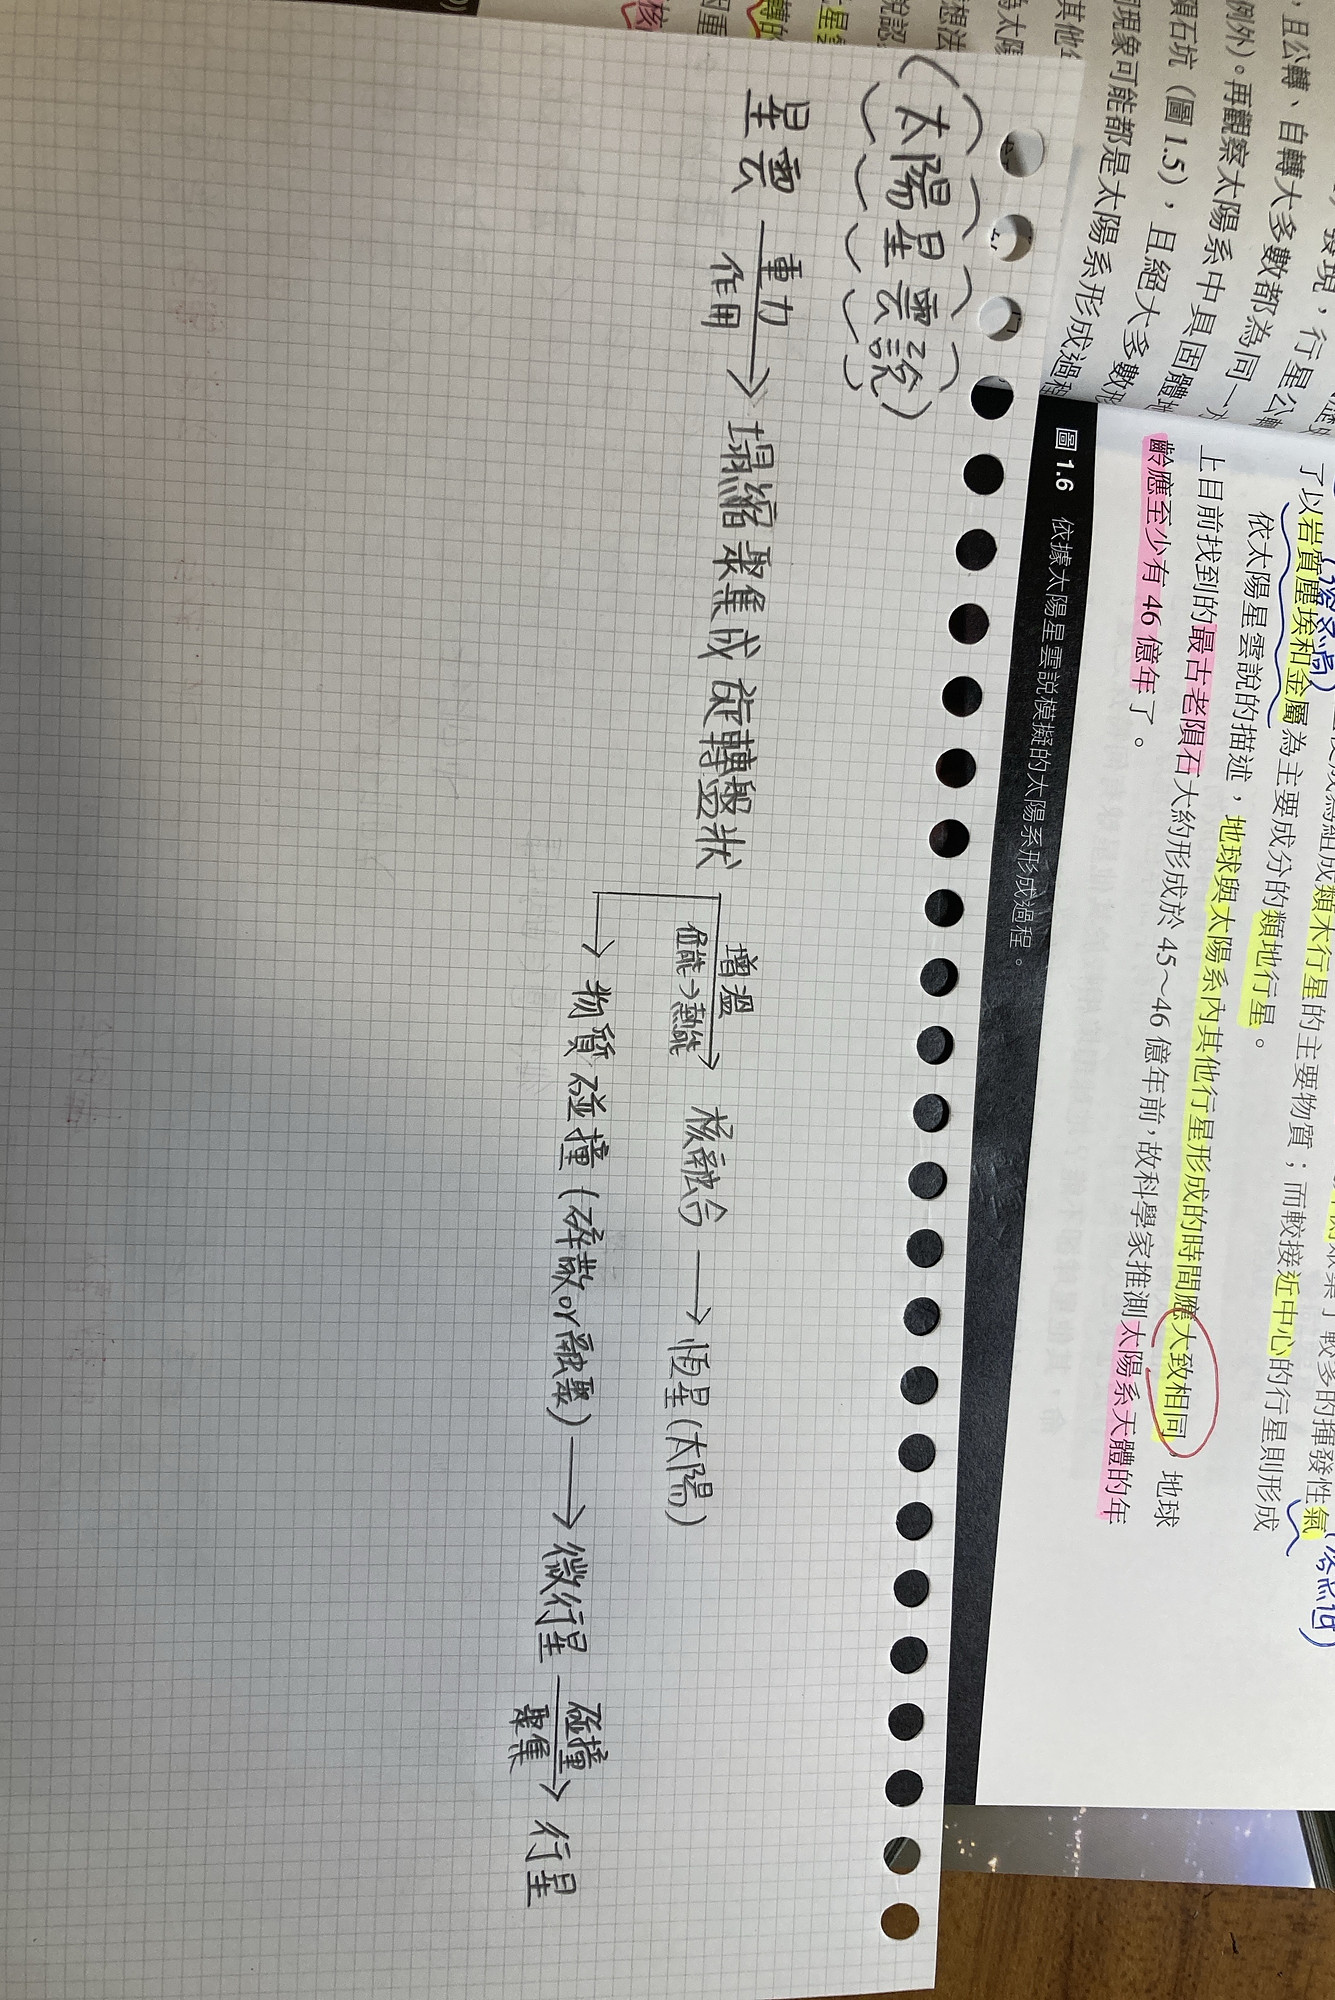 (太陽星雲說)
星雲 重力作用→ 塌縮聚集成旋轉盤狀
增溫 位能→熱能 → 核融合 → 恆星(太陽)
→ 物質碰撞(碎散or融聚) → 微行星 碰撞聚集→ 行星
，且公轉、自轉大多數都為同一
例外)。再觀察太陽系中具固體地
隕石坑（圖 1.5），且絕大多數形
現象可能都是太陽系形成過程
圖 1.6 依據太陽星雲說模擬的太陽系形成過程。
類木行星的主要物質；而較接近中心的行星則形成
了以岩質塵埃和金屬為主要成分的類地行星。
依太陽星雲說的描述，地球與太陽系內其他行星形成的時間應大致相同，地球
上目前找到的最古老隕石大約形成於 45～46 億年前，故科學家推測太陽系天體的年
齡應至少有 46 億年了。